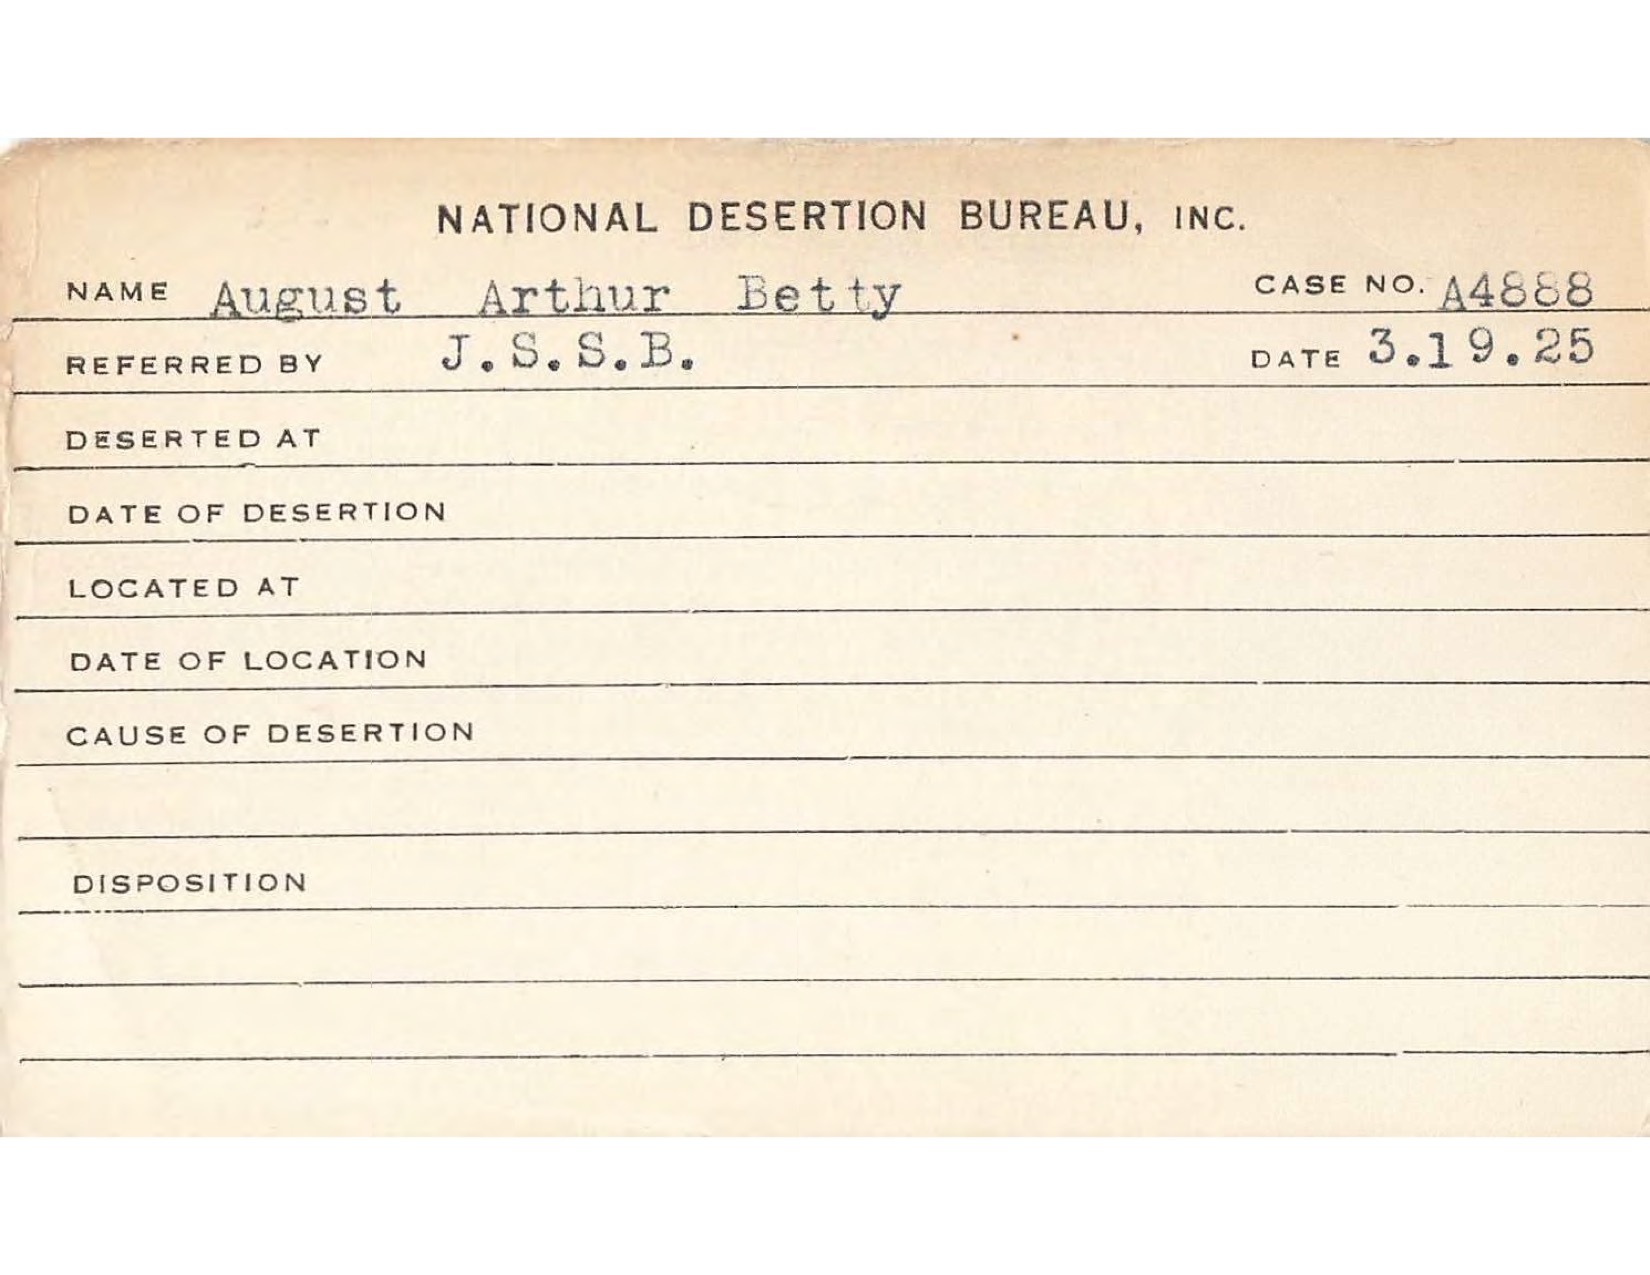 NATIONAL DESERTION BUREAU, INC.
NAME August Arthur Betty CASE NO. A4888
REFERRED BY J.S.S.B. DATE 3.19.25
DESERTED AT
DATE OF DESERTION
LOCATED AT
DATE OF LOCATION
CAUSE OF DESERTION
DISPOSITION